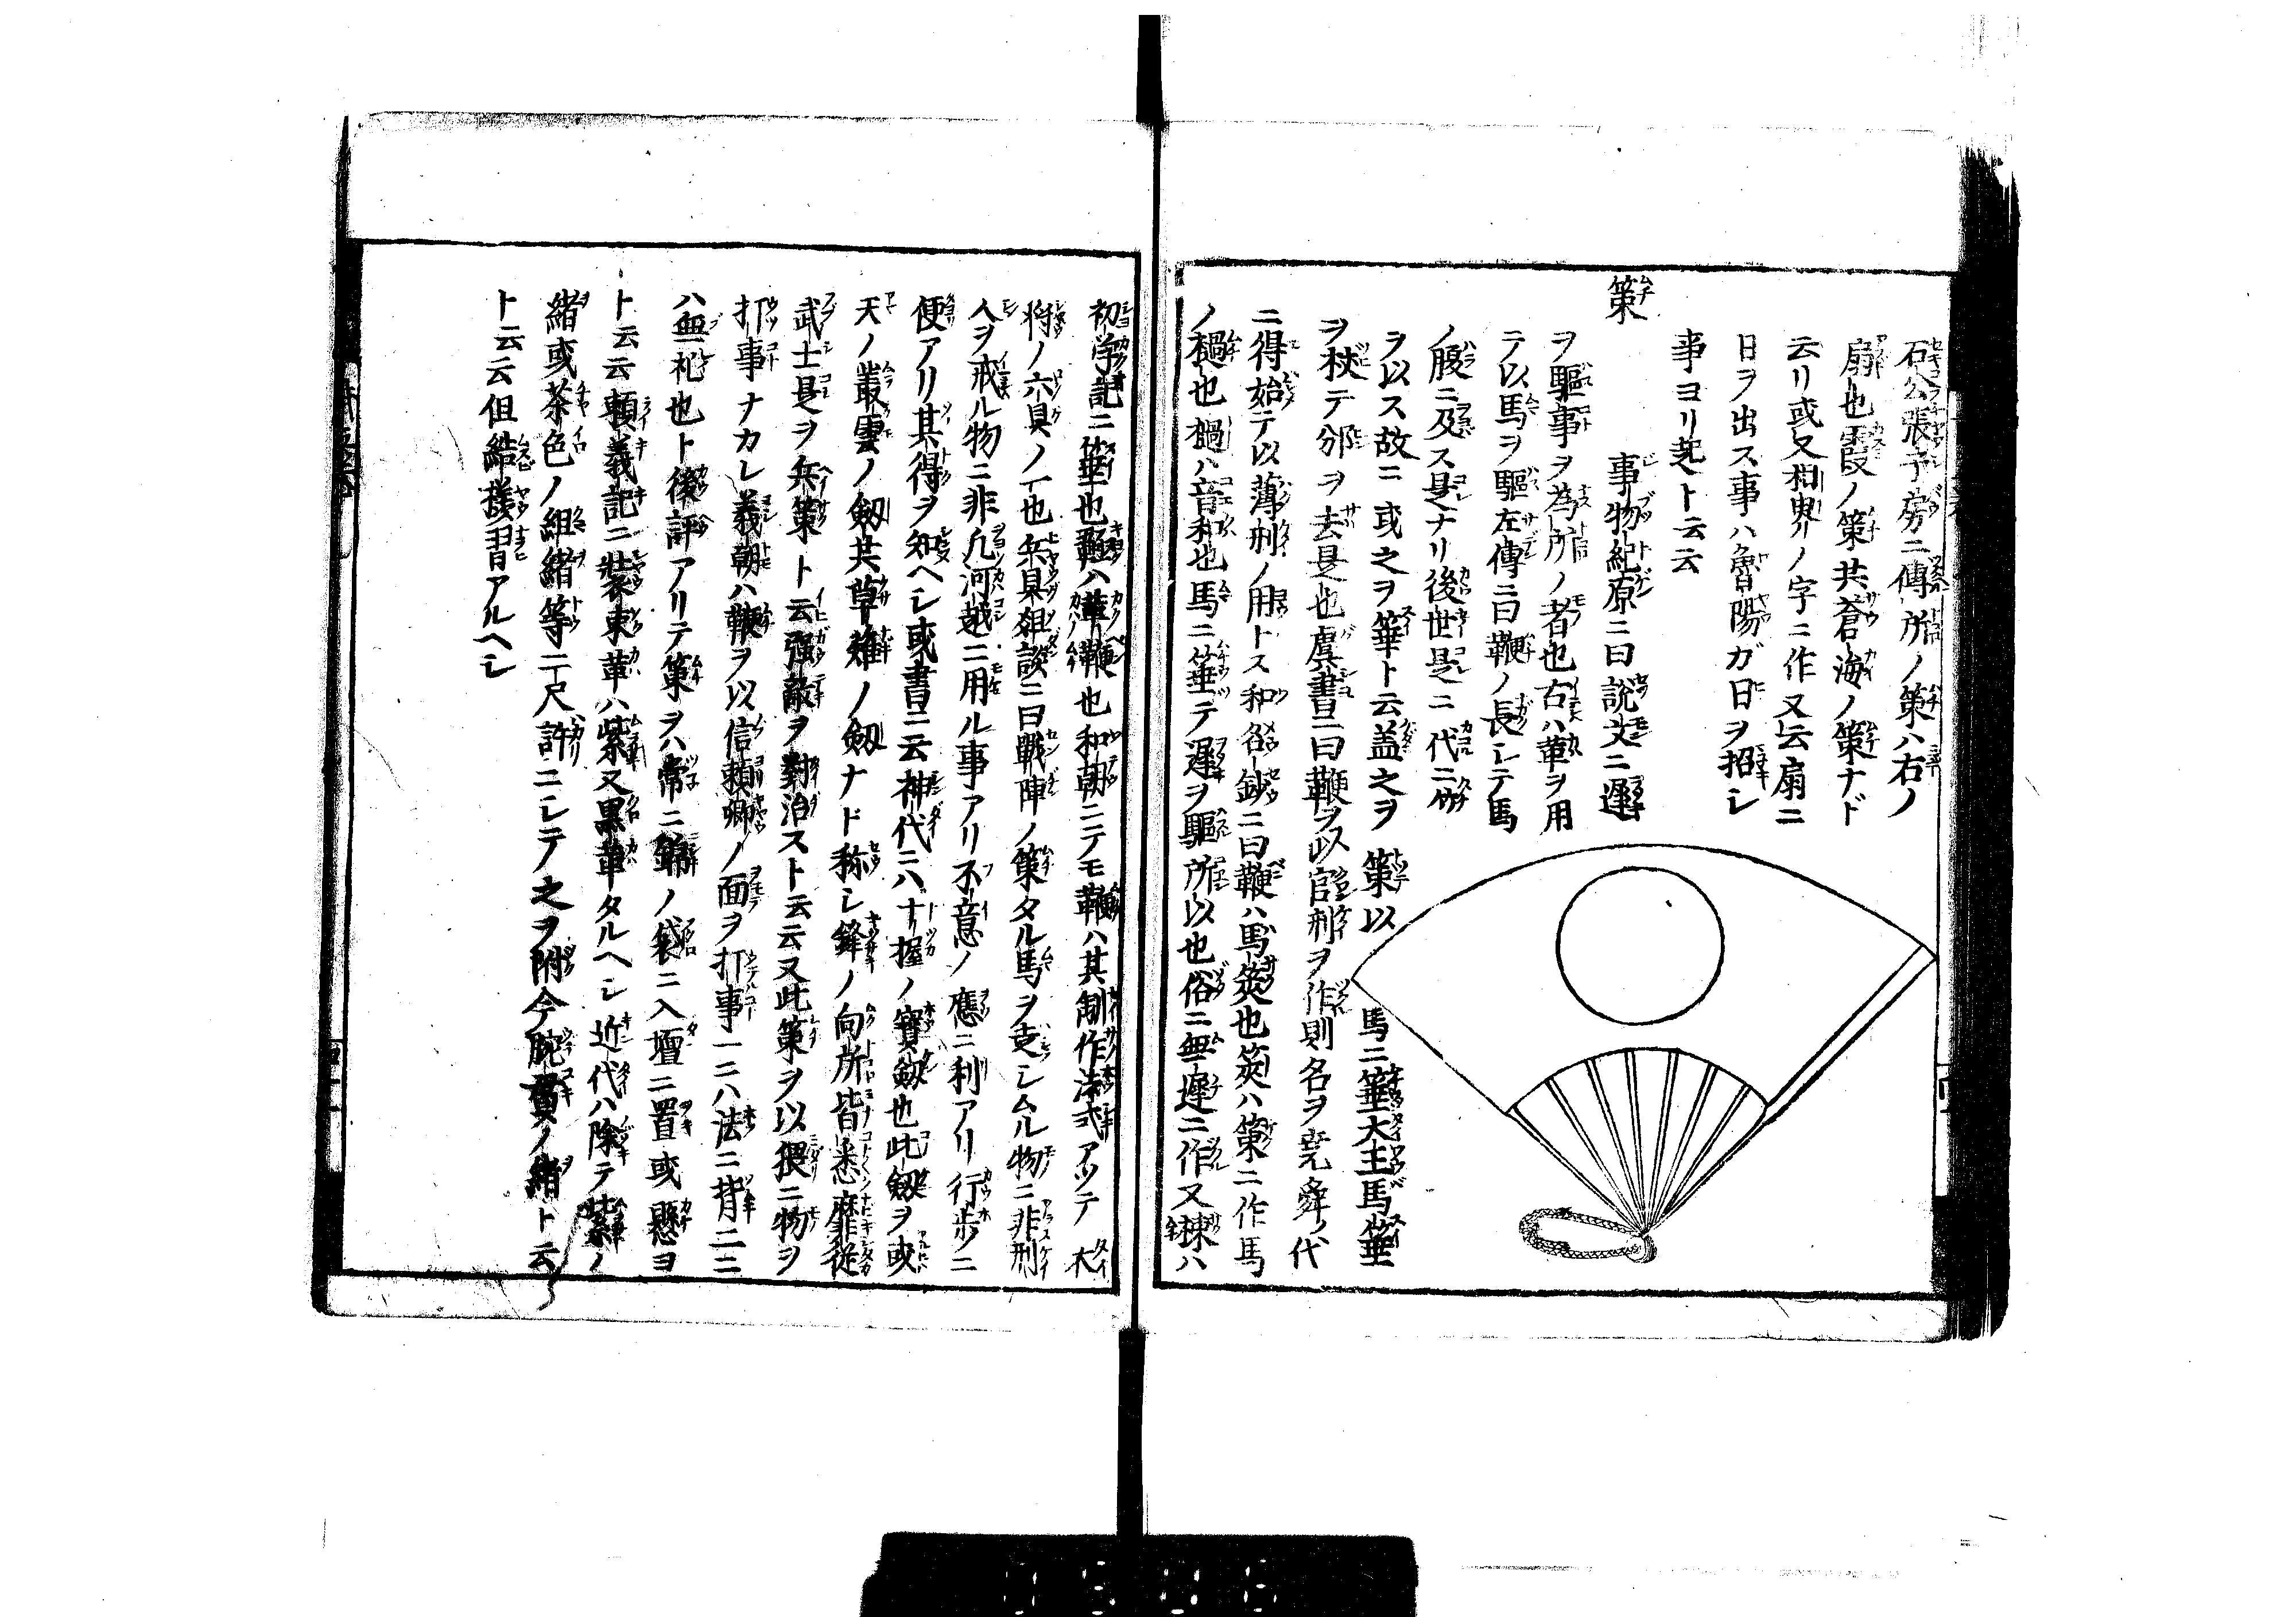 石公張子房ニ傳所ノ策ハ右ノ
扇也霞ノ策共蒼海ノ策ナド
云リ或又相曳ノ字ニ作又云扇ニ
日ヲ出ス事ハ魯陽ガ日ヲ招シ
事ヨリ起ト云云
策 事物紀原ニ曰説文ニ遅
ヲ驅事ヲ為所ノ者也右ハ革ヲ用
テ以馬ヲ驅左傳ニ曰鞭ノ長シテ馬
ノ腹ニ及ス是ナリ後世是ニ代ニ竹
ヲ以ス故ニ或之ヲ箠ト云盖之ヲ策以馬ニ箠大主馬箠
ヲ杖テ邠ヲ去是也虞書ニ曰鞭ヲ以官刑ヲ作則名ヲ尭舜ノ代
ニ得始テ以薄刑ノ用トス和名鈔ニ曰鞭ハ馬筴也筴ハ策ニ作馬
ノ檛也檛ハ音和也馬ニ箠テ遅ヲ驅所以也俗ニ無遅ニ作又楝ハ
初学記ニ箠也鞭ハ革鞭也和朝ニテモ鞭ハ其制作法式アツテ大
将ノ六具ノ一也兵具俎談ニ曰戰陣ノ策タル馬ヲ走シムル物ニ非刑
人ヲ戒ル物ニ非凡河越ニ用ル事アリ不意ノ應ニ利アリ行歩ノニ
便アリ其得ヲ知ヘシ或書ニ云神代ニハ十握ノ寶劔也此劔ヲ或
天ノ叢雲ノ劔共草薙ノ劔ナド称シ鋒ノ向所皆悉靡従
武士是ヲ兵策ト云强敵ヲ對治スト云云又此策ヲ以猥ニ物ヲ
打事ナカレ義朝ハ鞭ヲ以信頼卿ノ面ヲ打事一ニハ法ニ背二ニ
ハ無礼也ト後評アリテ策ヲハ常ニ錦ノ袋ニ入壇ニ置或懸ヨ
ト云云頼義記ニ装束革ハ紫又黒革タルヘシ近代ハ除テ紫ノ
緒或茶色ノ組緒等二尺許ニシテノ之ヲ附今腕貫ノ緒ト云
ト云云但結様習アルヘシ